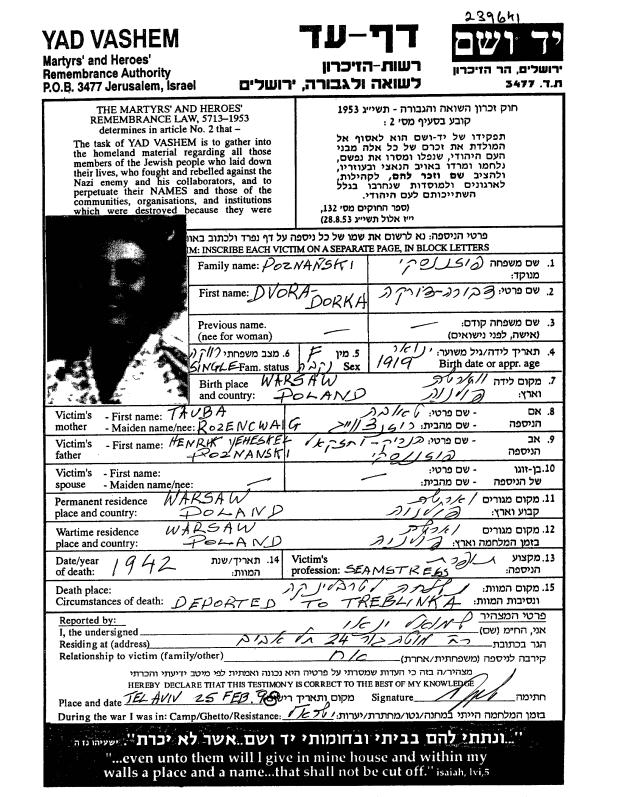 239641
YAD VASHEM
Martyrs' and Heroes'
Remembrance Authority
P.O.B. 3477 Jerusalem, Israel
דף-עד
רשות-הזיכרון
לשואה ולגבורה, ירושלים
יד ושם
ירושלים, הר הזיכרון
ת.ד. 3477
THE MARTYRS' AND HEROES'
REMEMBRANCE LAW, 5713–1953
determines in article No. 2 that –
The task of YAD VASHEM is to gather into
the homeland material regarding all those
members of the Jewish people who laid down
their lives, who fought and rebelled against the
Nazi enemy and his collaborators, and to
perpetuate their NAMES and those of the
communities, organisations, and institutions
which were destroyed because they were
חוק זכרון השואה והגבורה - תשי״ג 1953
קובע בסעיף מס׳ 2 :
תפקידו של יד-ושם הוא לאסוף אל
המולדת את זכרם של כל אלה מבני
העם היהודי, שנפלו ומסרו את נפשם,
נלחמו ומרדו באויב הנאצי ובעוזריו,
ולהציב שם וזכר להם, לקהילות,
לארגונים ולמוסדות שנחרבו בגלל
השתייכותם לעם היהודי.
(ספר החוקים מס׳ 132,
י״ז אלול תשי״ג 28.8.53)
פרטי הניספה: נא לרשום את שמו של כל ניספה על דף נפרד ולכתוב באות
IM: INSCRIBE EACH VICTIM ON A SEPARATE PAGE, IN BLOCK LETTERS
Family name: POZNAŃSKI פוזננסקי 1. שם משפחה
מנוקד:
First name: DVORA- דבורה-דורקה 2. שם פרטי:
DORKA
Previous name. — — 3. שם משפחה קודם:
(nee for woman) (אישה, לפני נישואים)
6. מצב משפחתי רווקה 5. מין F ינואר 4. תאריך לידה/גיל משוער:
SINGLE Fam. status נקבה Sex 1919 Birth date or appr. age
Birth place WARSAW 7. מקום לידה
and country: POLAND פולניה וארץ:
Victim's - First name: TAUBA טאובה - שם פרטי: 8. אם
mother - Maiden name/nee: ROZENCWAIG רוזנצווייג - שם מהבית: הניספה
Victim's - First name: HENRIK YEHESKEL הניק-יחזקאל - שם פרטי: 9. אב
father POZNANSKI פוזננסקי הניספה
Victim's - First name: — - שם פרטי: 10. בן-זוגו
spouse - Maiden name/nee: — - שם מהבית: של הניספה
Permanent residence WARSAW 11. מקום מגורים
place and country: POLAND פולניה קבוע וארץ:
Wartime residence WARSAW 12. מקום מגורים
place and country: POLAND פולניה בזמן המלחמה וארץ:
Date/year 1942 14. תאריך/שנת Victim's תופרת 13. מקצוע
of death: המוות: profession: SEAMSTRESS הניספה:
Death place: נשלחה לטרבלינקה 15. מקום המוות:
Circumstances of death: DEPORTED TO TREBLINKA ונסיבות המוות:
פרטי המצהיר
Reported by:
I, the undersigned שמואל ינאי אני, החי״מ (שם)
Residing at (address) 24 תל אביב הגר בכתובת
Relationship to victim (family/other) אח קירבה לניספה (משפחתית/אחרת)
מצהיר/ה בזה כי העדות שמסרתי על פרטיה היא נכונה ואמתית לפי מיטב ידיעתי והכרתי
HEREBY DECLARE THAT THIS TESTIMONY IS CORRECT TO THE BEST OF MY KNOWLEDGE
Place and date TEL AVIV 25 FEB. 98 מקום ותאריך Signature חתימה
During the war I was in: Camp/Ghetto/Resistance: ישראל בזמן המלחמה הייתי במחנה/גטו/מחתרת/יערות:
"...ונתתי להם בביתי ובחומותי יד ושם...אשר לא יכרת". ישעיהו נו ה
"...even unto them will I give in mine house and within my
walls a place and a name...that shall not be cut off." isaiah, lvi,5